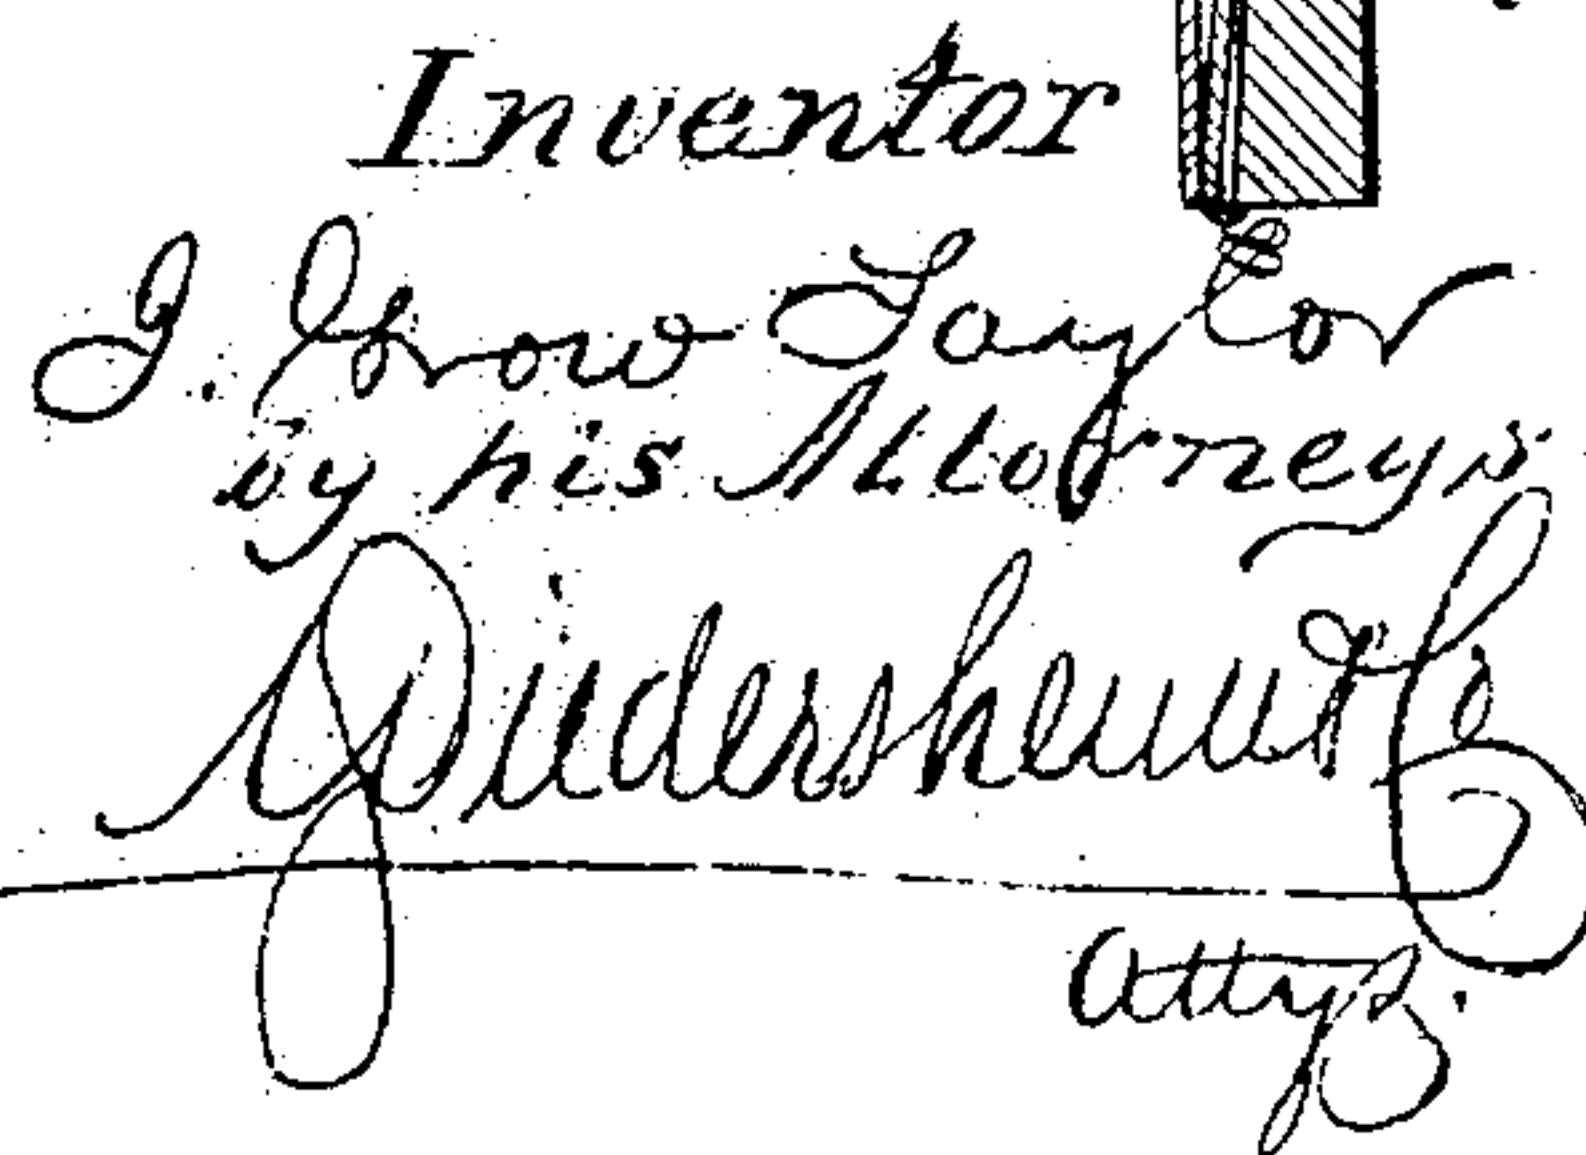 Inventor
J. Grow Taylor
by his Attorneys
Widersheim & Co
Attys.